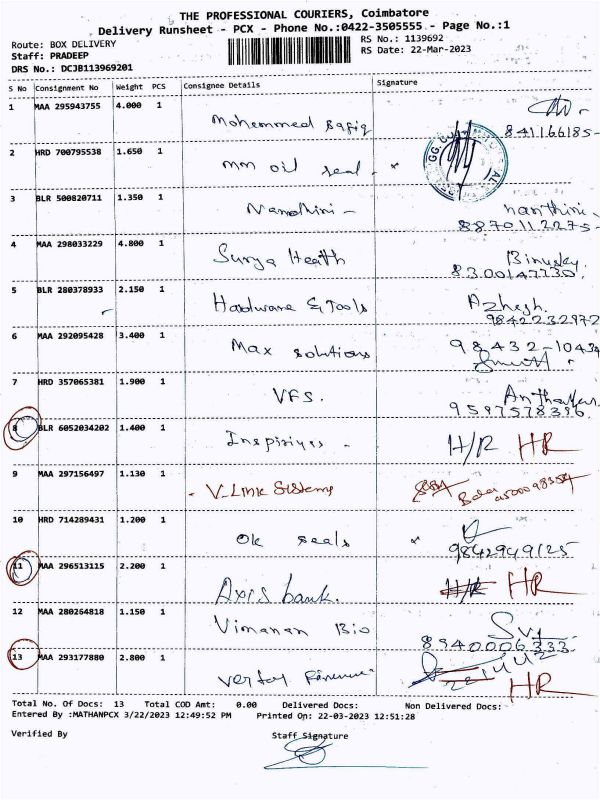 THE PROFESSIONAL COURIERS, Coimbatore
Delivery Runsheet - PCX - Phone No.:0422-3505555 - Page No.:1
Route: BOX DELIVERY
Staff: PRADEEP
DRS No.: DCJB113969201
RS No.: 1139692
RS Date: 22-Mar-2023
S No Consignment No Weight PCS Consignee Details Signature
1 MAA 295943755 4.000 1 Mohemmed Safiq
841166185-
2 HRD 700795538 1.650 1 mm oil seal - x
3 BLR 500820711 1.350 1 Nandhini - nanthini
8870112275-
4 MAA 298033229 4.800 1 Surya Heath
8300147730.
5 BLR 280378933 2.150 1 Hardware & Tools
9842232972
6 MAA 292095428 3.400 1 Max solutions 98432-10434
7 HRD 357065381 1.900 1 VFS.
9597578396.
8 BLR 6052034202 1.400 1 H/R HR
9 MAA 297156497 1.130 1 V-Link Systems
10 HRD 714289431 1.200 1 Ok seals x
9842949125
11 MAA 296513115 2.200 1 Axis bank. H/R HR
12 MAA 280264818 1.150 1 Vimanan Bio
8940006333.
13 MAA 293177880 2.800 1 HR
Total No. Of Docs: 13 Total COD Amt: 0.00 Delivered Docs: Non Delivered Docs:
Entered By :MATHANPCX 3/22/2023 12:49:52 PM Printed On: 22-03-2023 12:51:28
Verified By Staff Signature